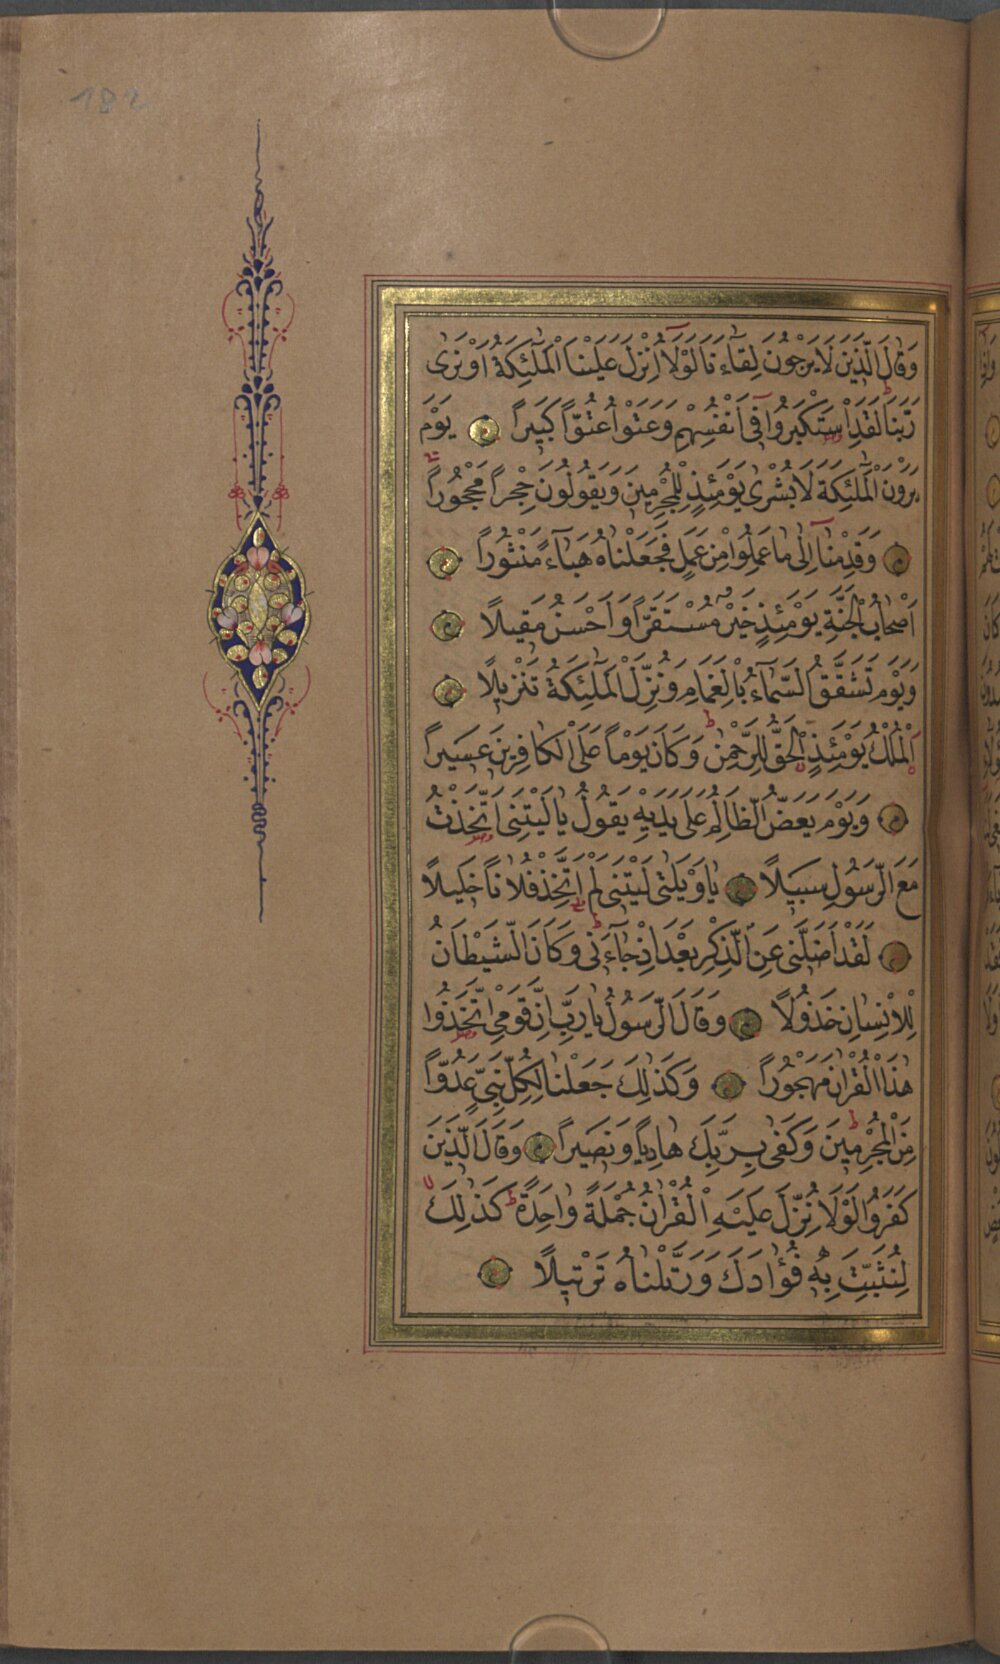 182
وَقَالَ الَّذِينَ لَا يَرْجُونَ لِقَاءَنَا لَوْلَا اُنْزِلَ عَلَيْنَا الْمَلٰئِكَةُ اَوْ نَرٰى
رَبَّنَا لَقَدِ اسْتَكْبَرُوا فِى اَنْفُسِهِمْ وَعَتَوْا عُتُوًّا كَبِيرًا يَوْمَ
يَرَوْنَ الْمَلٰئِكَةَ لَا بُشْرٰى يَوْمَئِذٍ لِلْمُجْرِمِينَ وَيَقُولُونَ حِجْرًا مَحْجُورًا
وَقَدِمْنَا اِلٰى مَا عَمِلُوا مِنْ عَمَلٍ فَجَعَلْنَاهُ هَبَاءً مَنْثُورًا
اَصْحَابُ الْجَنَّةِ يَوْمَئِذٍ خَيْرٌ مُسْتَقَرًّا وَاَحْسَنُ مَقِيلًا
وَيَوْمَ تَشَقَّقُ السَّمَاءُ بِالْغَمَامِ وَنُزِّلَ الْمَلٰئِكَةُ تَنْزِيلًا
اَلْمُلْكُ يَوْمَئِذٍ الْحَقُّ لِلرَّحْمٰنِ وَكَانَ يَوْمًا عَلَى الْكَافِرِينَ عَسِيرًا
وَيَوْمَ يَعَضُّ الظَّالِمُ عَلٰى يَدَيْهِ يَقُولُ يَا لَيْتَنِى اتَّخَذْتُ
مَعَ الرَّسُولِ سَبِيلًا يَا وَيْلَتٰى لَيْتَنِى لَمْ اَتَّخِذْ فُلَانًا خَلِيلًا
لَقَدْ اَضَلَّنِى عَنِ الذِّكْرِ بَعْدَ اِذْ جَاءَنِى وَكَانَ الشَّيْطَانُ
لِلْاِنْسَانِ خَذُولًا وَقَالَ الرَّسُولُ يَا رَبِّ اِنَّ قَوْمِى اتَّخَذُوا
هٰذَا الْقُرْاٰنَ مَهْجُورًا وَكَذٰلِكَ جَعَلْنَا لِكُلِّ نَبِىٍّ عَدُوًّا
مِنَ الْمُجْرِمِينَ وَكَفٰى بِرَبِّكَ هَادِيًا وَنَصِيرًا وَقَالَ الَّذِينَ
كَفَرُوا لَوْلَا نُزِّلَ عَلَيْهِ الْقُرْاٰنُ جُمْلَةً وَاحِدَةً كَذٰلِكَ
لِنُثَبِّتَ بِهِ فُؤَادَكَ وَرَتَّلْنَاهُ تَرْتِيلًا